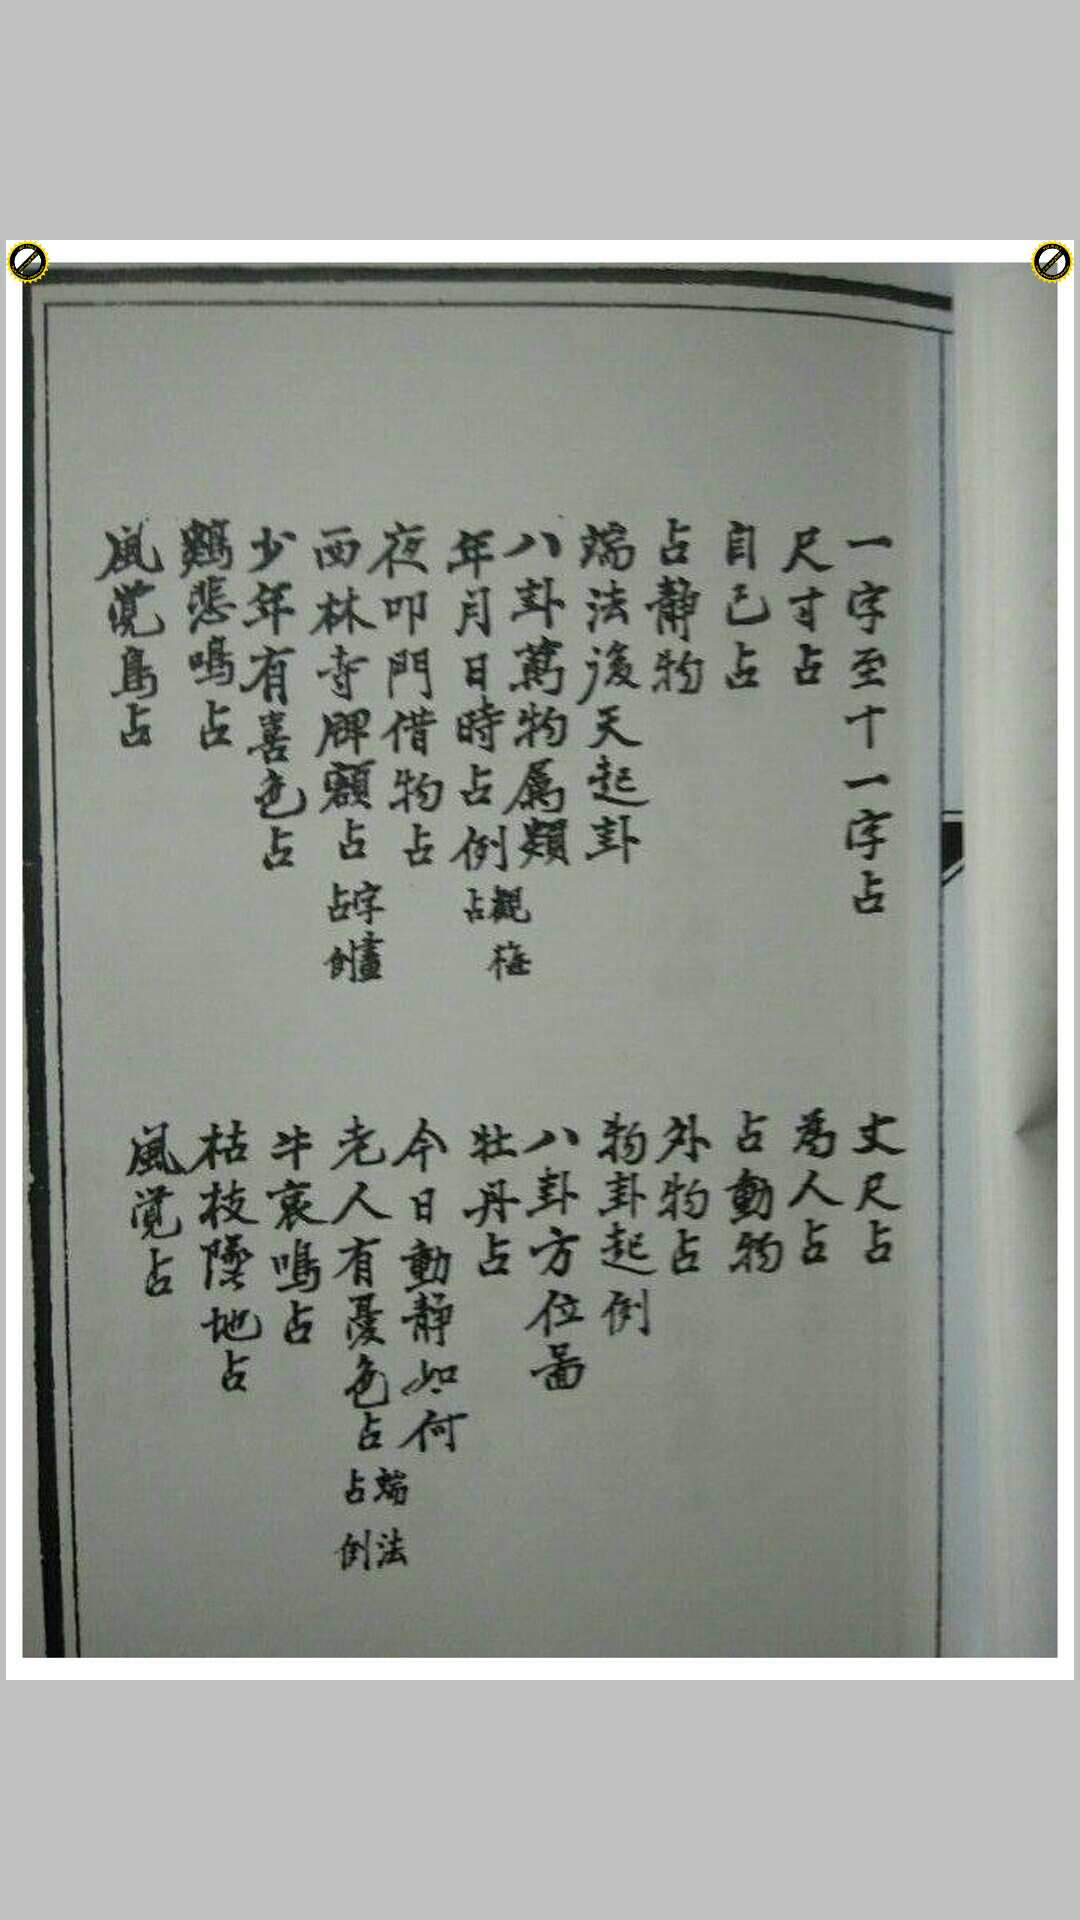 一字至十一字占
丈尺占
尺寸占
為人占
自己占
占動物
占静物
外物占
端法後天起卦
物卦起例
八卦萬物屬類
八卦方位圖
年月日時占例 觀梅占
牡丹占
夜叩門借物占
今日動静如何
西林寺牌額占 字畫占例
老人有憂色占 端法占例
少年有喜色占
牛哀鳴占
鷄悲鳴占
枯枝墜地占
風覚鳥占
風覚占